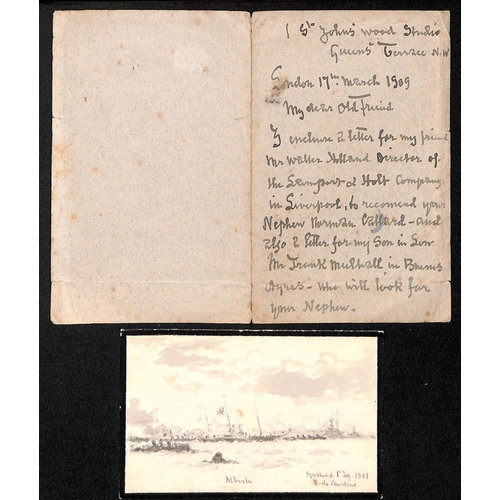 1 St Johns' wood Studio
Queens' Terrace N.W
London 17th March 1909
My dear Old friend
I enclose a letter for my friend
Mr Walter Holland Director of
the Lamport & Holt Company
in Liverpool, to recomend your
Nephew Norman - and
also a letter for my Son in Low
Mr Frank Mulhall in Buenos
Ayres - who will look for
your Nephew -
Alberta
1st Feb. 1901